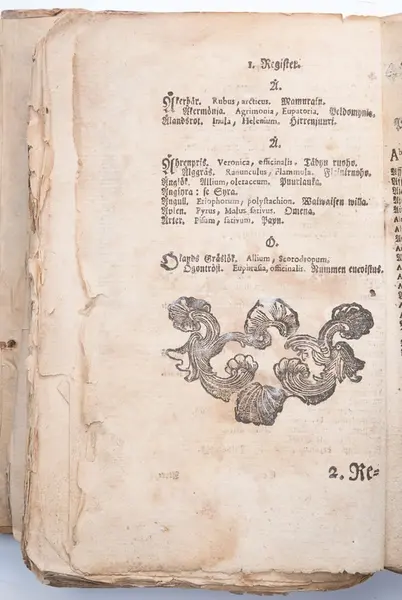 1. Register.
Å.
Åkerbär. Rubus, arcticus. Mamurain.
Åkermönja. Agrimonia, Eupatoria. Veldomynia.
Ålandsrot. Inula, Helenium. Hirrenjuuri.
Ä.
Ährenpris. Veronica, officinalis. Tädyn ruoho.
Älggräs. Ranunculus, Flammula.
Änglök. Allium, oleraceum. Puurlauka.
Ängsyra: se Syra.
Ängull. Eriophorum, polystachion. Waiwaisen willa.
Äplen. Pyrus, Malus sativus. Omena.
Ärter. Pisum, sativum. Papu.
Ö.
Ölands Gräslök. Allium, Scorodropum.
Ögontröst. Euphrasia, officinalis. Nummen
2. Re=